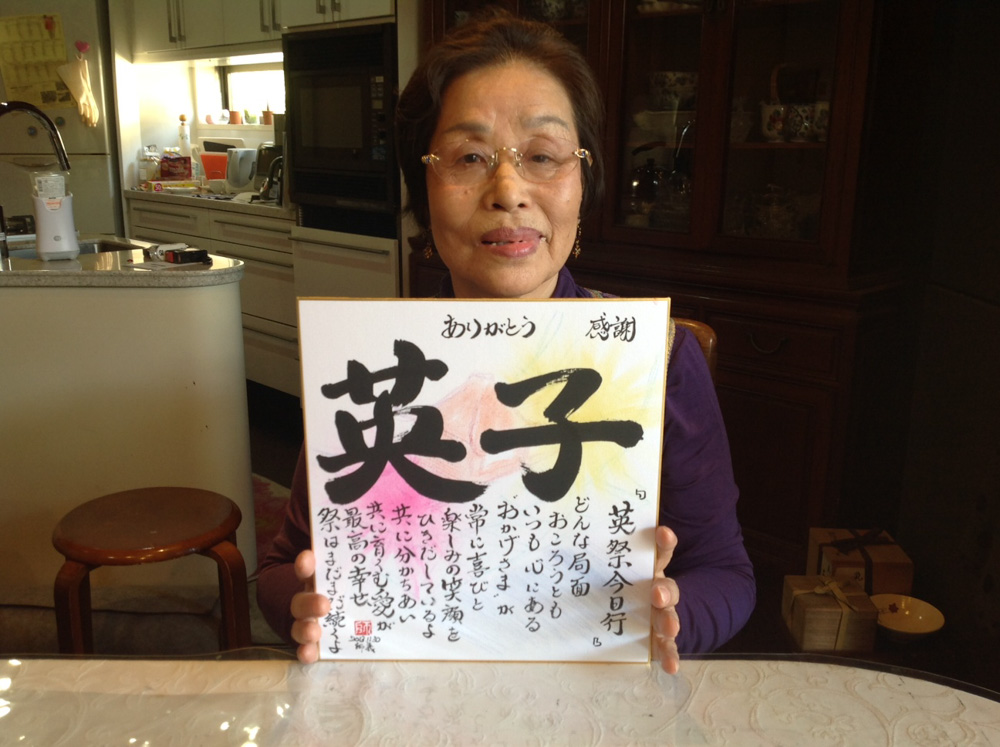 ありがとう　感謝
英子
『英祭今日行』
どんな局面
おころうとも
いつも心にある
"おかげさま"が
常に喜びと
楽しみの笑顔を
ひきだしているよ
共に分かちあい
共に育くむ愛が
最高の幸せ
祭はまだまだ続くよ